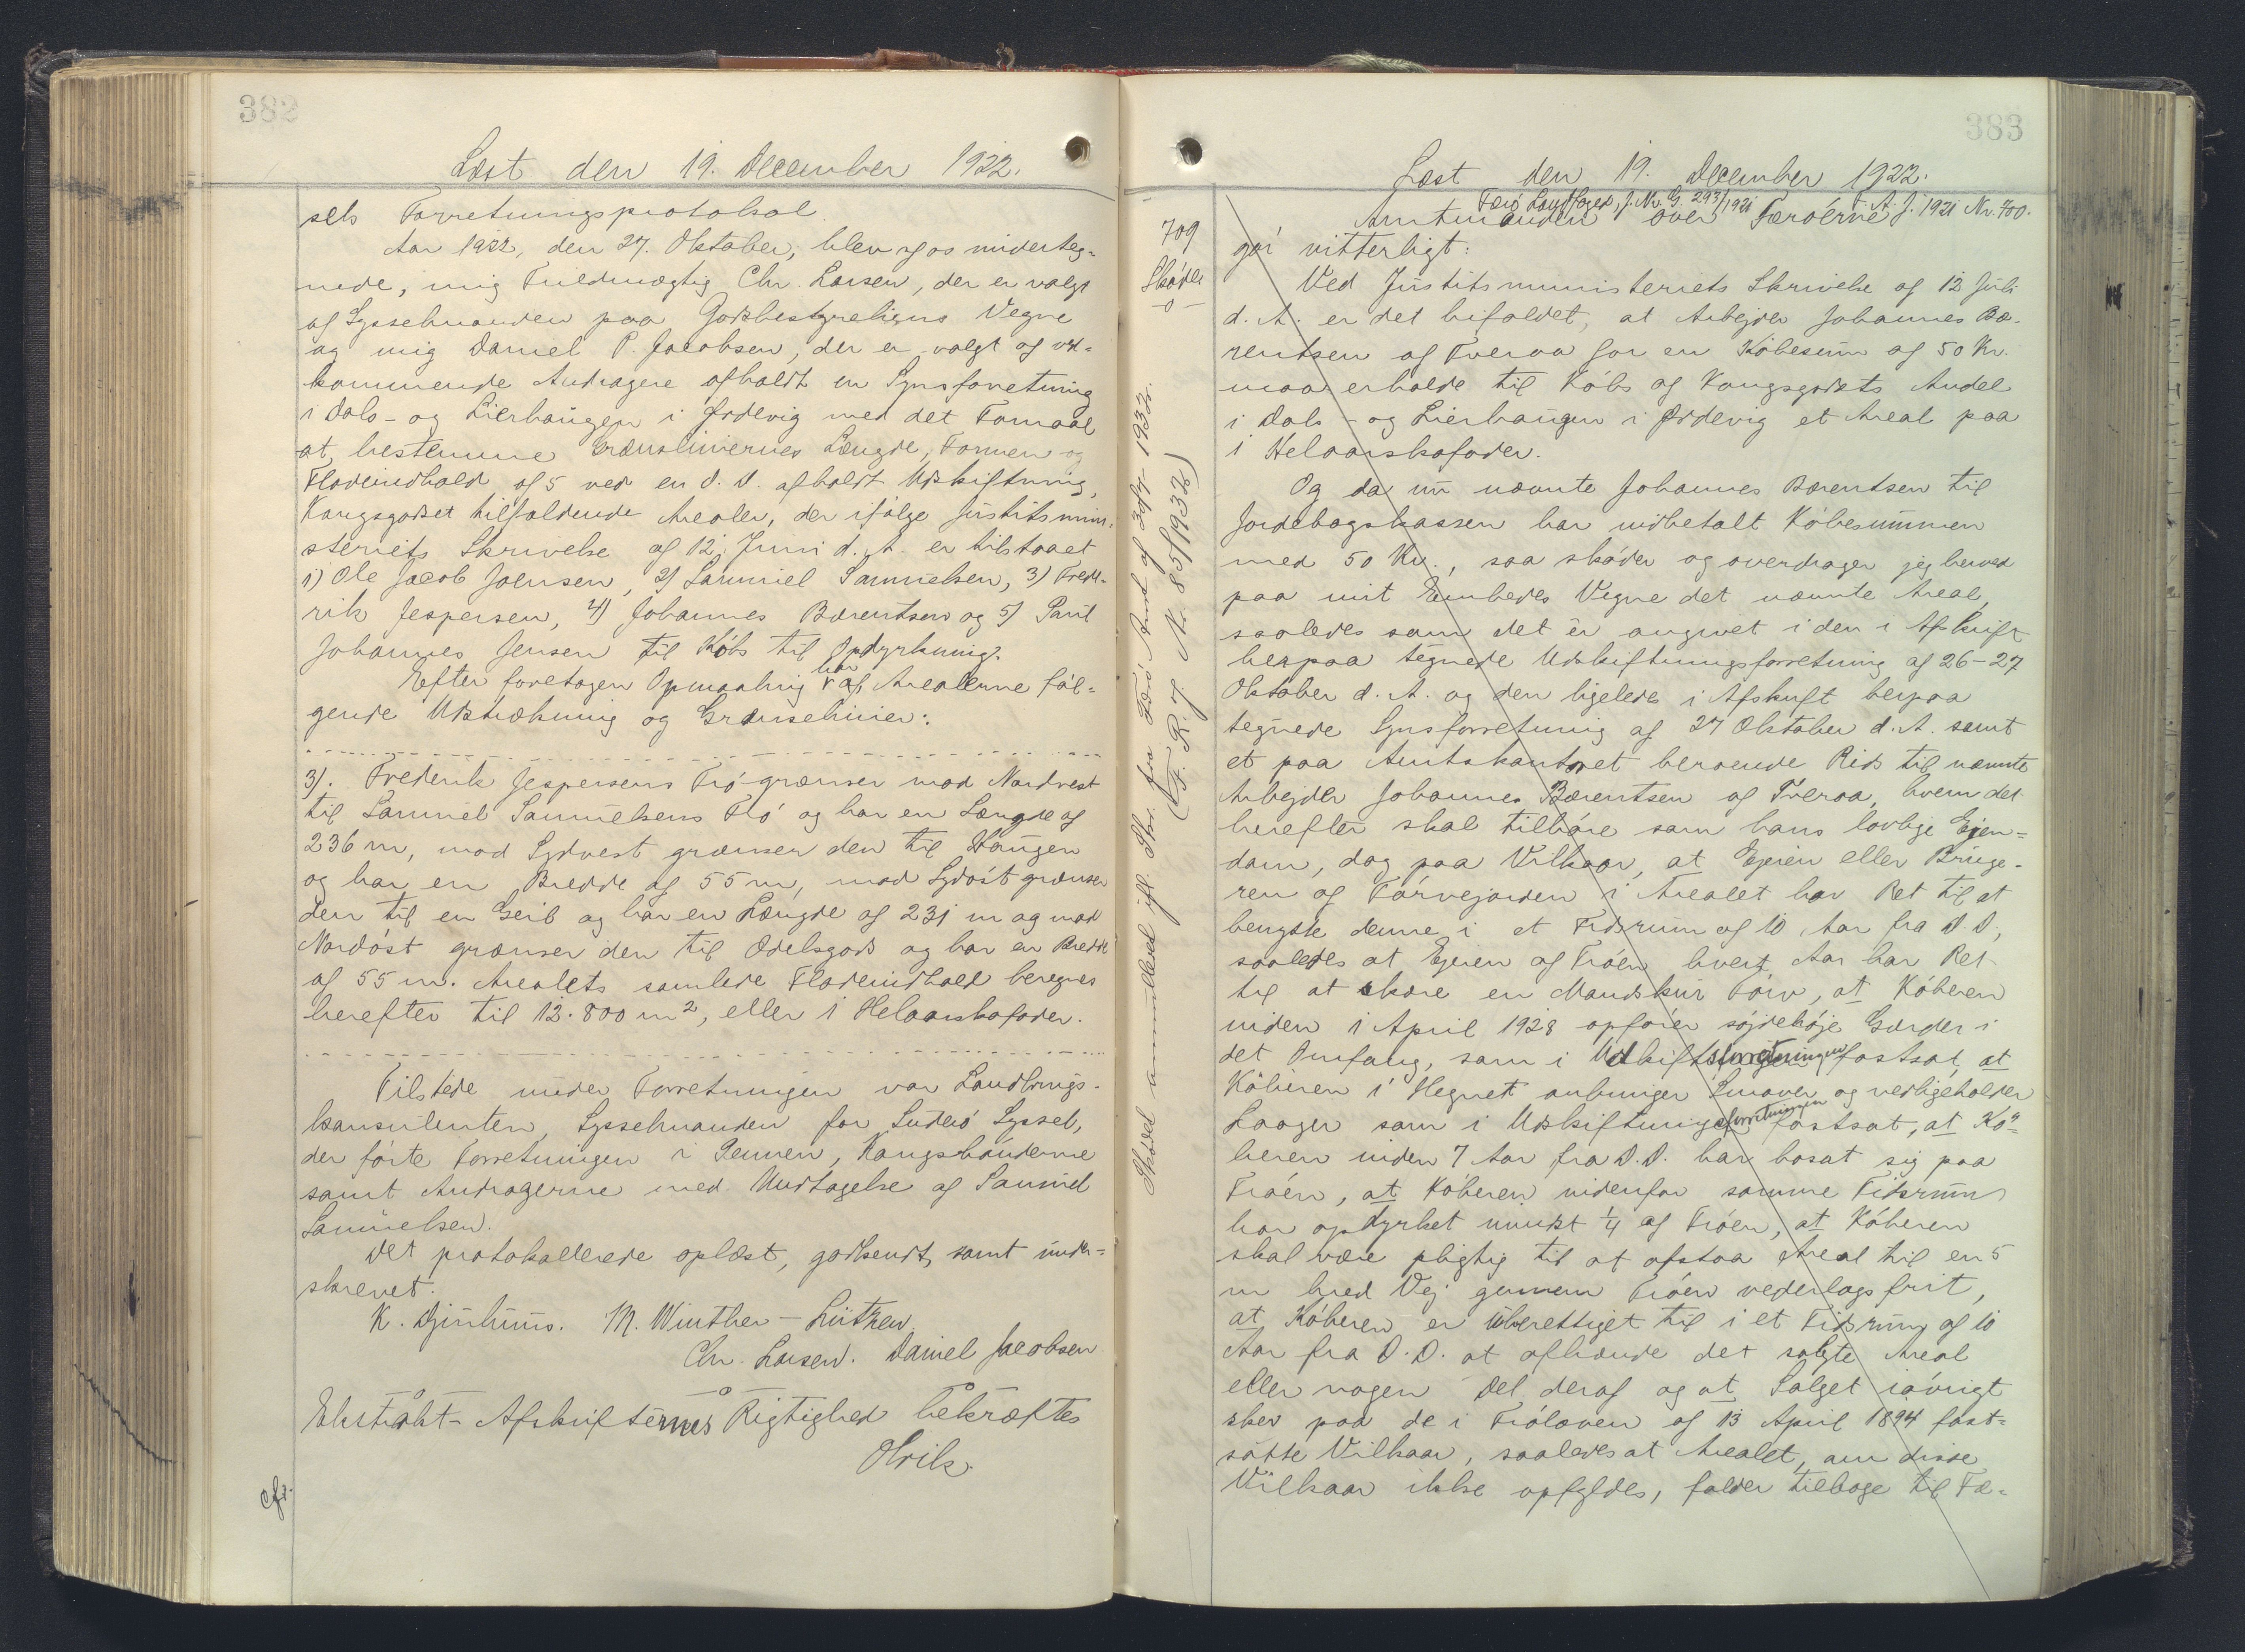 382
Læst den 19. December 1922.
sels Forretningsprotokol.
Aar 1922, den 27. Oktober, blev af os underteg=
nede, mig Fuldmægtig Chr. Larsen, der er valgt
af Sysselmanden paa Godsbestyrelsens Vegne
og mig Daniel P. Jacobsen, der er valgt af ved=
kommende Andragere afholdt en Synsforretning
i Dals- og Lierhaugen i Ørdevig med det Formaal
at bestemme Grænseliniernes Længde, Formen og
Fladeindhold af 5 ved en d. D. afholdt Udskiftning,
Kongsgodset tilfaldende Arealer, der ifølge Justitsmini=
steriets Skrivelse af 12. Juni d. A. er tilstaaet
1) Ole Jacob Joensen, 2) Samuel Samuelsen, 3) Frede-
rik Jespersen, 4) Johannes Bærentsen og 5) Poul
Johannes Jensen til Købs til Opdyrkning.
Efter foretagen Opmaaling har af Arealerne føl=
gende Udstrækning og Grænselinier:
3). Frederik Jespersens Trø grænser mod Nordvest
til Samuel Samuelsens Trø og har en Længde af
236 m, mod Sydvest grænser den til Haugen
og har en Bredde af 55 m, mod Sydøst grænser
den til en Geil og har en Længde af 231 m og mod
Nordøst grænser den til Odelsgods og har en Bredde
af 55 m. Arealets samlede Fladeindhold beregnes
herefter til 12.800 m², eller 1 Helaarskofoder.
Tilstede under Forretningen var Landbrugs-
konsulenten, Sysselmanden for Suderø Syssel,
der førte Forretningen i Pennen, Kongsbønderne
samt Andragerne med Undtagelse af Samuel
Samuelsen.
Det protokollerede oplæst, godkendt, samt under=
skrevet.
K. Djurhuus. M. Winther-Lützen.
Chr. Larsen. Daniel Jacobsen
Ekstrakt-Afskrifternes Rigtighed bekræftes
Olrik.
cfr.
383
Læst den 19. December 1922.
Færø Landfoged, J. Nr. G. 293/1921 F. A. J. 1921 Nr. 700.
Amtmanden over Færøerne
709
Skøde
gør vitterligt:
Ved Justitsministeriets Skrivelse af 12 Juli
d. A. er det bifaldet, at Arbejder Johannes Bæ-
rentsen af Tveraa for en Købesum af 50 Kr.
maa erholde til Købs af Kongsgodsets Andel
i Dals- og Lierhaugen i Ørdevig et Areal paa
1 Helaarskofoder.
Og da nu nævnte Johannes Bærentsen til
Jordebogskassen har indbetalt Købesummen
med 50 Kr., saa skøder og overdrager jeg herved
paa mit Embedes Vegne det nævnte Areal,
saaledes som det er angivet i den i Afskrift
herpaa tegnede Udskiftningsforretning af 26-27
Oktober d. A. og den ligeledes i Afskrift herpaa
tegnede Synsforretning af 27 Oktober d. A. samt
et paa Amtskontoret beroende Rids til nævnte
Arbejder Johannes Bærentsen af Tveraa, hvem det
herefter skal tilhøre som hans lovlige Ejen=
dom, dog paa Vilkaar, at Ejeren eller Bruge-
ren af Tørvejorden i Arealet har Ret til at
benytte denne i et Tidsrum af 10 Aar fra D. D.,
saaledes at Ejeren af Trøen hvert Aar har Ret
til at skære en Mandskur Tørv, at Køberen
inden 1 April 1928 opfører søjdehøje Gærder i
det Omfang, som i Udskiftsforretningen fastsat, at
Køberen i Hegnet anbringer Smover og vedligeholder
Laager som i Udskiftningsforretningen fastsat, at Kø=
beren inden 7 Aar fra D. D. har bosat sig paa
Trøen, at Køberen indenfor samme Tidsrum
har opdyrket mindst 1/4 af Trøen, at Køberen
skal være pligtig til at afstaa Areal til en 5
m bred Vej gennem Trøen vederlagsfrit,
at Køberen er uberettiget til i et Tidsrum af 10
Aar fra D. D. at afhænde det solgte Areal
eller nogen Del deraf og at Salget iøvrigt
sker paa de i Trøloven af 13 April 1894 fast=
satte Vilkaar, saaledes at Arealet, om disse
Vilkaar ikke opfyldes, falder tilbage til Fæ-
Skødet annulleret ifl. Skr. fra Færø Amt af 1932.
(F. R. J. Nr. 85/1932)